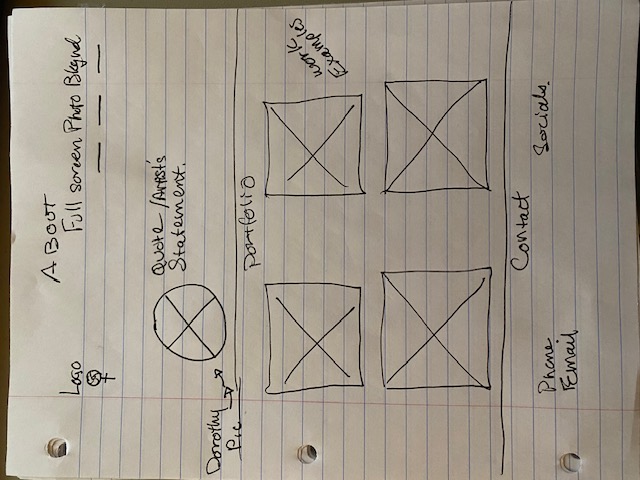 ABOUT
Logo
Full screen Photo Bkgnd
Quote/Artist's
Statement.
Dorothy
Pic
Portfolio
Work
Examples
Contact
Phone
Email
Socials.